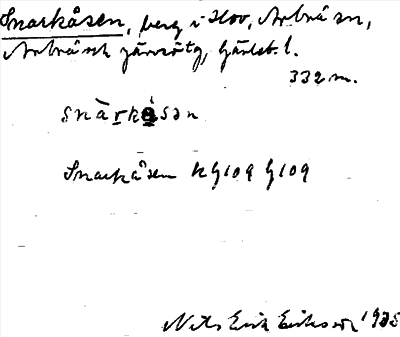 Snarkåsen, berg i Hov, Arbrå sn,
Arbrå sk järnvstg, Gävleb. l.
332 m.
snàrkåsən
Snarkåsen Kg109 G109
Nils Erik Eriksson 1935